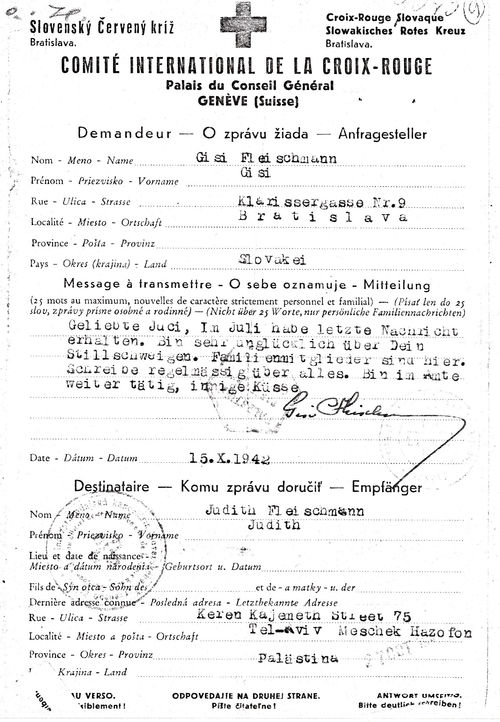 Slovenský Červený kríž
Bratislava.
Croix-Rouge Slovaque
Slowakisches Rotes Kreuz
Bratislava.
COMITÉ INTERNATIONAL DE LA CROIX-ROUGE
Palais du Conseil Général
GENÈVE (Suisse)
Demandeur — O zprávu žiada — Anfragesteller
Nom - Meno - Name Gisi Fleischmann
Prénom - Priezvisko - Vorname Gisi
Rue - Ulica - Strasse Klarissergasse Nr.9
Localité - Miesto - Ortschaft Bratislava
Province - Pošta - Provinz
Pays - Okres (krajina) - Land Slovakei
Message à transmettre - O sebe oznamuje - Mitteilung
(25 mots au maximum, nouvelles de caractère strictement personnel et familial) — (Písať len do 25
slov, zprávy prísne osobné a rodinné) — (Nicht über 25 Worte, nur persönliche Familiennachrichten)
Geliebte Juci, Im Juli habe letzte Nachricht
erhalten. Bin sehr unglücklich über Dein
Stillschweigen. Familienmitglieder sind hier.
Schreibe regelmässig über alles. Bin im Amte
weiter tätig, innige Küsse
Date - Dátum - Datum 15.X.1942
Destinataire — Komu zprávu doručiť — Empfänger
Nom - Meno - Name Judith Fleischmann
Prénom - Priezvisko - Vorname Judith
Lieu et date de naissance
Miesto a dátum národenia - Geburtsort u. Datum
Fils de - Syn otca - Sohn des et de - a matky - u. der
Dernière adresse connue - Posledná adresa - Letztbekannte Adresse
Rue - Ulica - Strasse Keren Kajemeth Street 75
Localité - Miesto a pošta - Ortschaft Tel-Aviv Meschek Hazofon
Province - Okres - Provinz Palästina
Krajina - Land
AU VERSO.
ODPOVEDAJTE NA DRUHEJ STRANE.
Píšte čitateľne!
ANTWORT UMSEITIG.
Bitte deutlich schreiben!